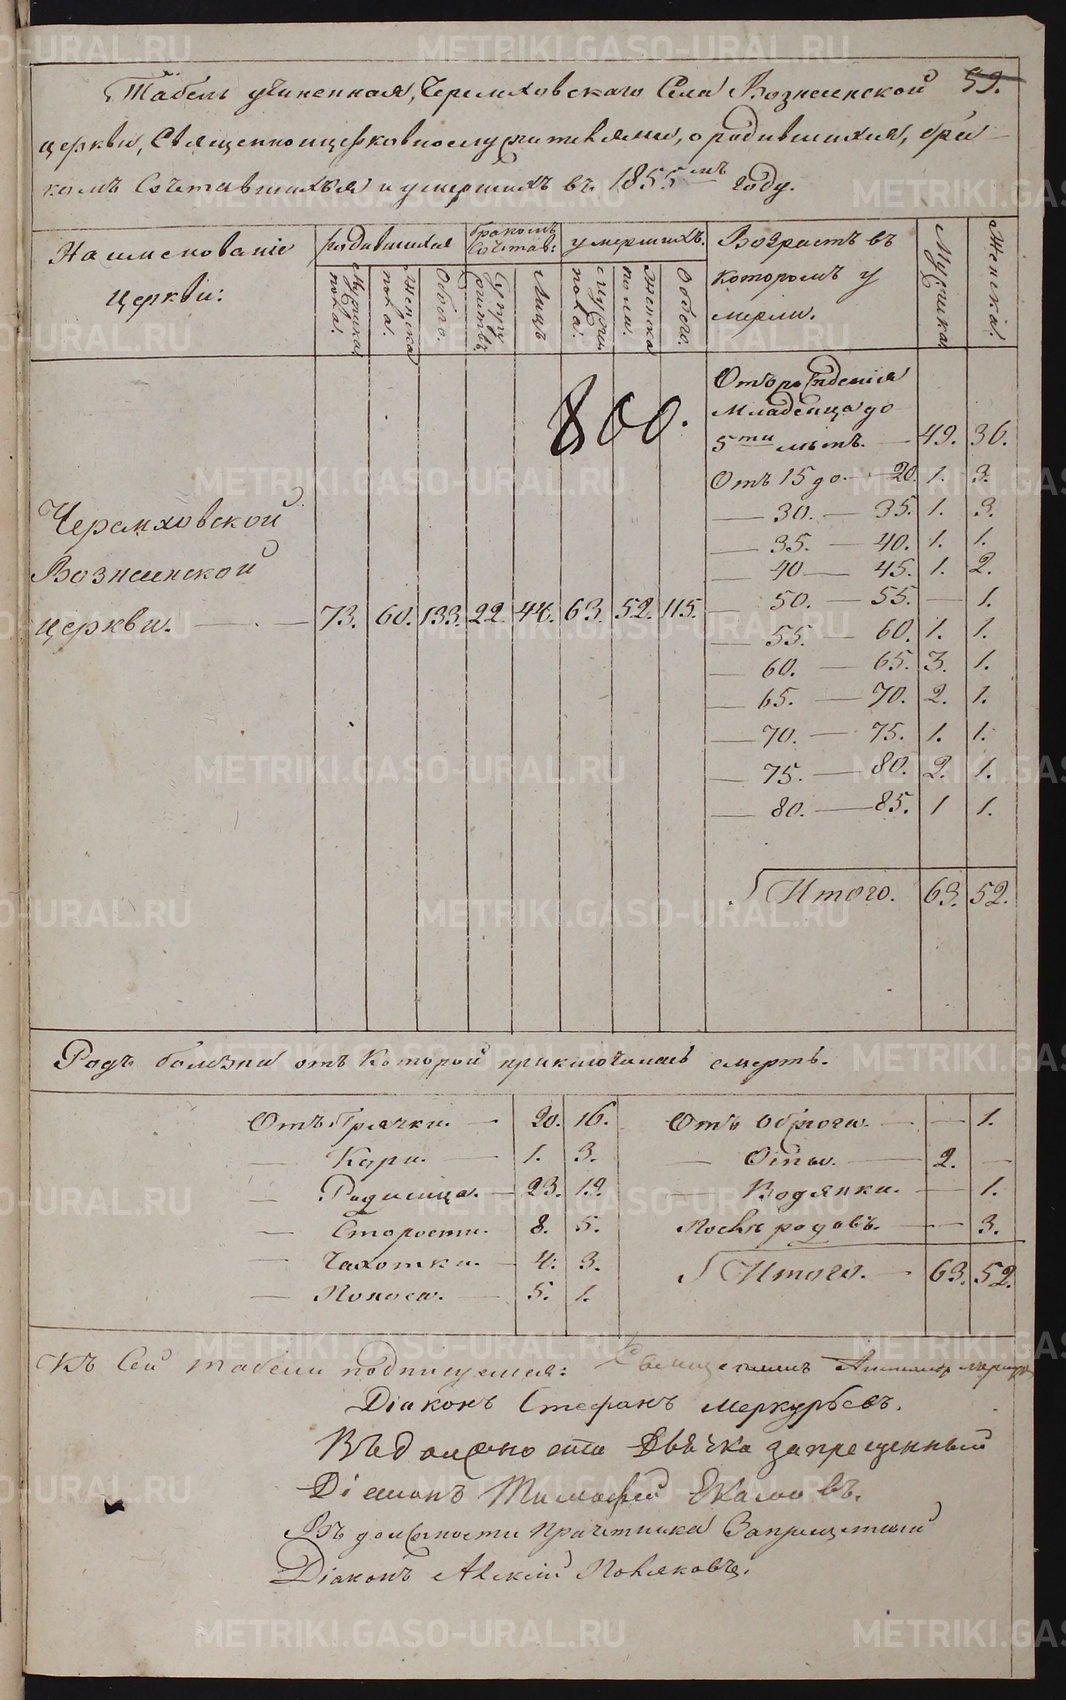 Табель учиненная, Черемховскаго Села Вознесенской 59.
церкви, Священноцерковнослужителями, о родившихся, бра
комъ Сочетавшихся и умершихъ въ 1855мъ году.
Наименованіе церкви:
родившихся
бракомъ Сочетав:
умершихъ.
Возрастъ въ которомъ умерли.
Мужска.
Женска.
Мужска пола.
Женска пола.
Обоего.
Супружествъ
Лицъ
мужска пола.
женска полы.
Обоего.
800.
Отъ рожденія
младенца до
5ти лѣтъ. — 49. 36.
Отъ 15 до — 20. 1. 3.
— 30. — 35. 1. 3.
— 35. — 40. 1. 1.
— 40 — 45. 1. 2.
— 50. — 55. — 1.
— 55. — 60. 1. 1.
— 60. — 65. 3. 1.
— 65. — 70. 2. 1.
— 70. — 75. 1. 1.
— 75. — 80. 2. 1.
— 80. — 85. 1 1.
Итого. 63. 52.
Черемховской
Вознесенской
церкви. — 73. 60. 133. 22. 44. 63. 52. 115.
Родъ болѣзни отъ которой приключилась смерть.
Отъ Горячки. — 20. 16.
— Кори. — 1. 3.
— Родимца. — 23. 19.
— Старости. 8. 5.
— Чахотки. — 4. 3.
— Поноса. — 5. 1.
Отъ — — 1.
— Оспы. — 2. —
— Водянки. — 1.
Послѣ родовъ. — 3.
Итого. — 63. 52.
Къ Сей табели подписуемся: Священникъ
Діаконъ Стефанъ Меркурьевъ.
Въ должности Дьячка запрещенный
Діаконъ Тимофей
Въ должности Причетника Запрещенный
Діаконъ Алексій Поляковъ.
METRIKI.GASO-URAL.RU